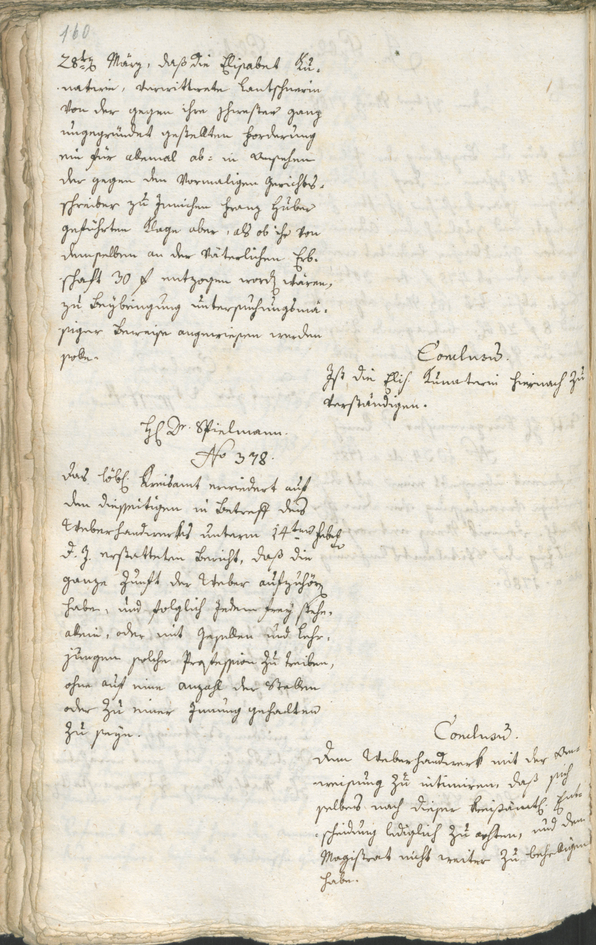 160
28ten März, daß die Elisabet Ku-
naterin, verwittwete Lantschnerin
von der gegen ihre Schwester ganz
ungegründet gestellten Forderung
ein für allemal ab- in Ansehen
der gegen den vormaligen Gerichts-
schreiber zu Innichen Franz Huber
geführten Klage aber, als ob ihr von
demselben an der Väterlichen Erb-
schaft 30 f entzogen worden wären,
zu Beybringung untersuchungsmä-
siger Beweise angewiesen werden
solle.
Conclusum.
Ist die Elis. Kunaterin hiernach zu
verständigen.
H. Dr. Spielmann.
No 378.
Das löbl. Kreisamt erwiedert auf
den diesseitigen in Betreff des
Weberhandwerks unterm 14ten
d. J. erstatteten Bericht, daß die
ganze Zunft der Weber aufzuhören
habe, und folglich jedem frey stehe,
allein, oder mit Gesellen und Lehr-
jungen solche Profession zu treiben,
ohne auf eine Anzahl der
oder zu einer Innung gehalten
zu seyn.
Conclusum.
Dem Weberhandwerk mit der An-
weisung zu intimiren, daß sich
selbes nach dieser kreisämtl. Ent-
scheidung lediglich zu achten, und den
Magistrat nicht weiter zu behelligen
habe.